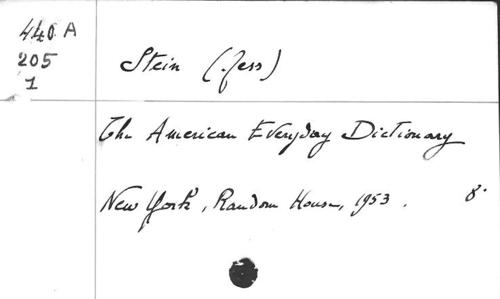 440 A
205
1
Stein (Jess)
The American Everyday Dictionary
New York, Random House, 1953. 8°